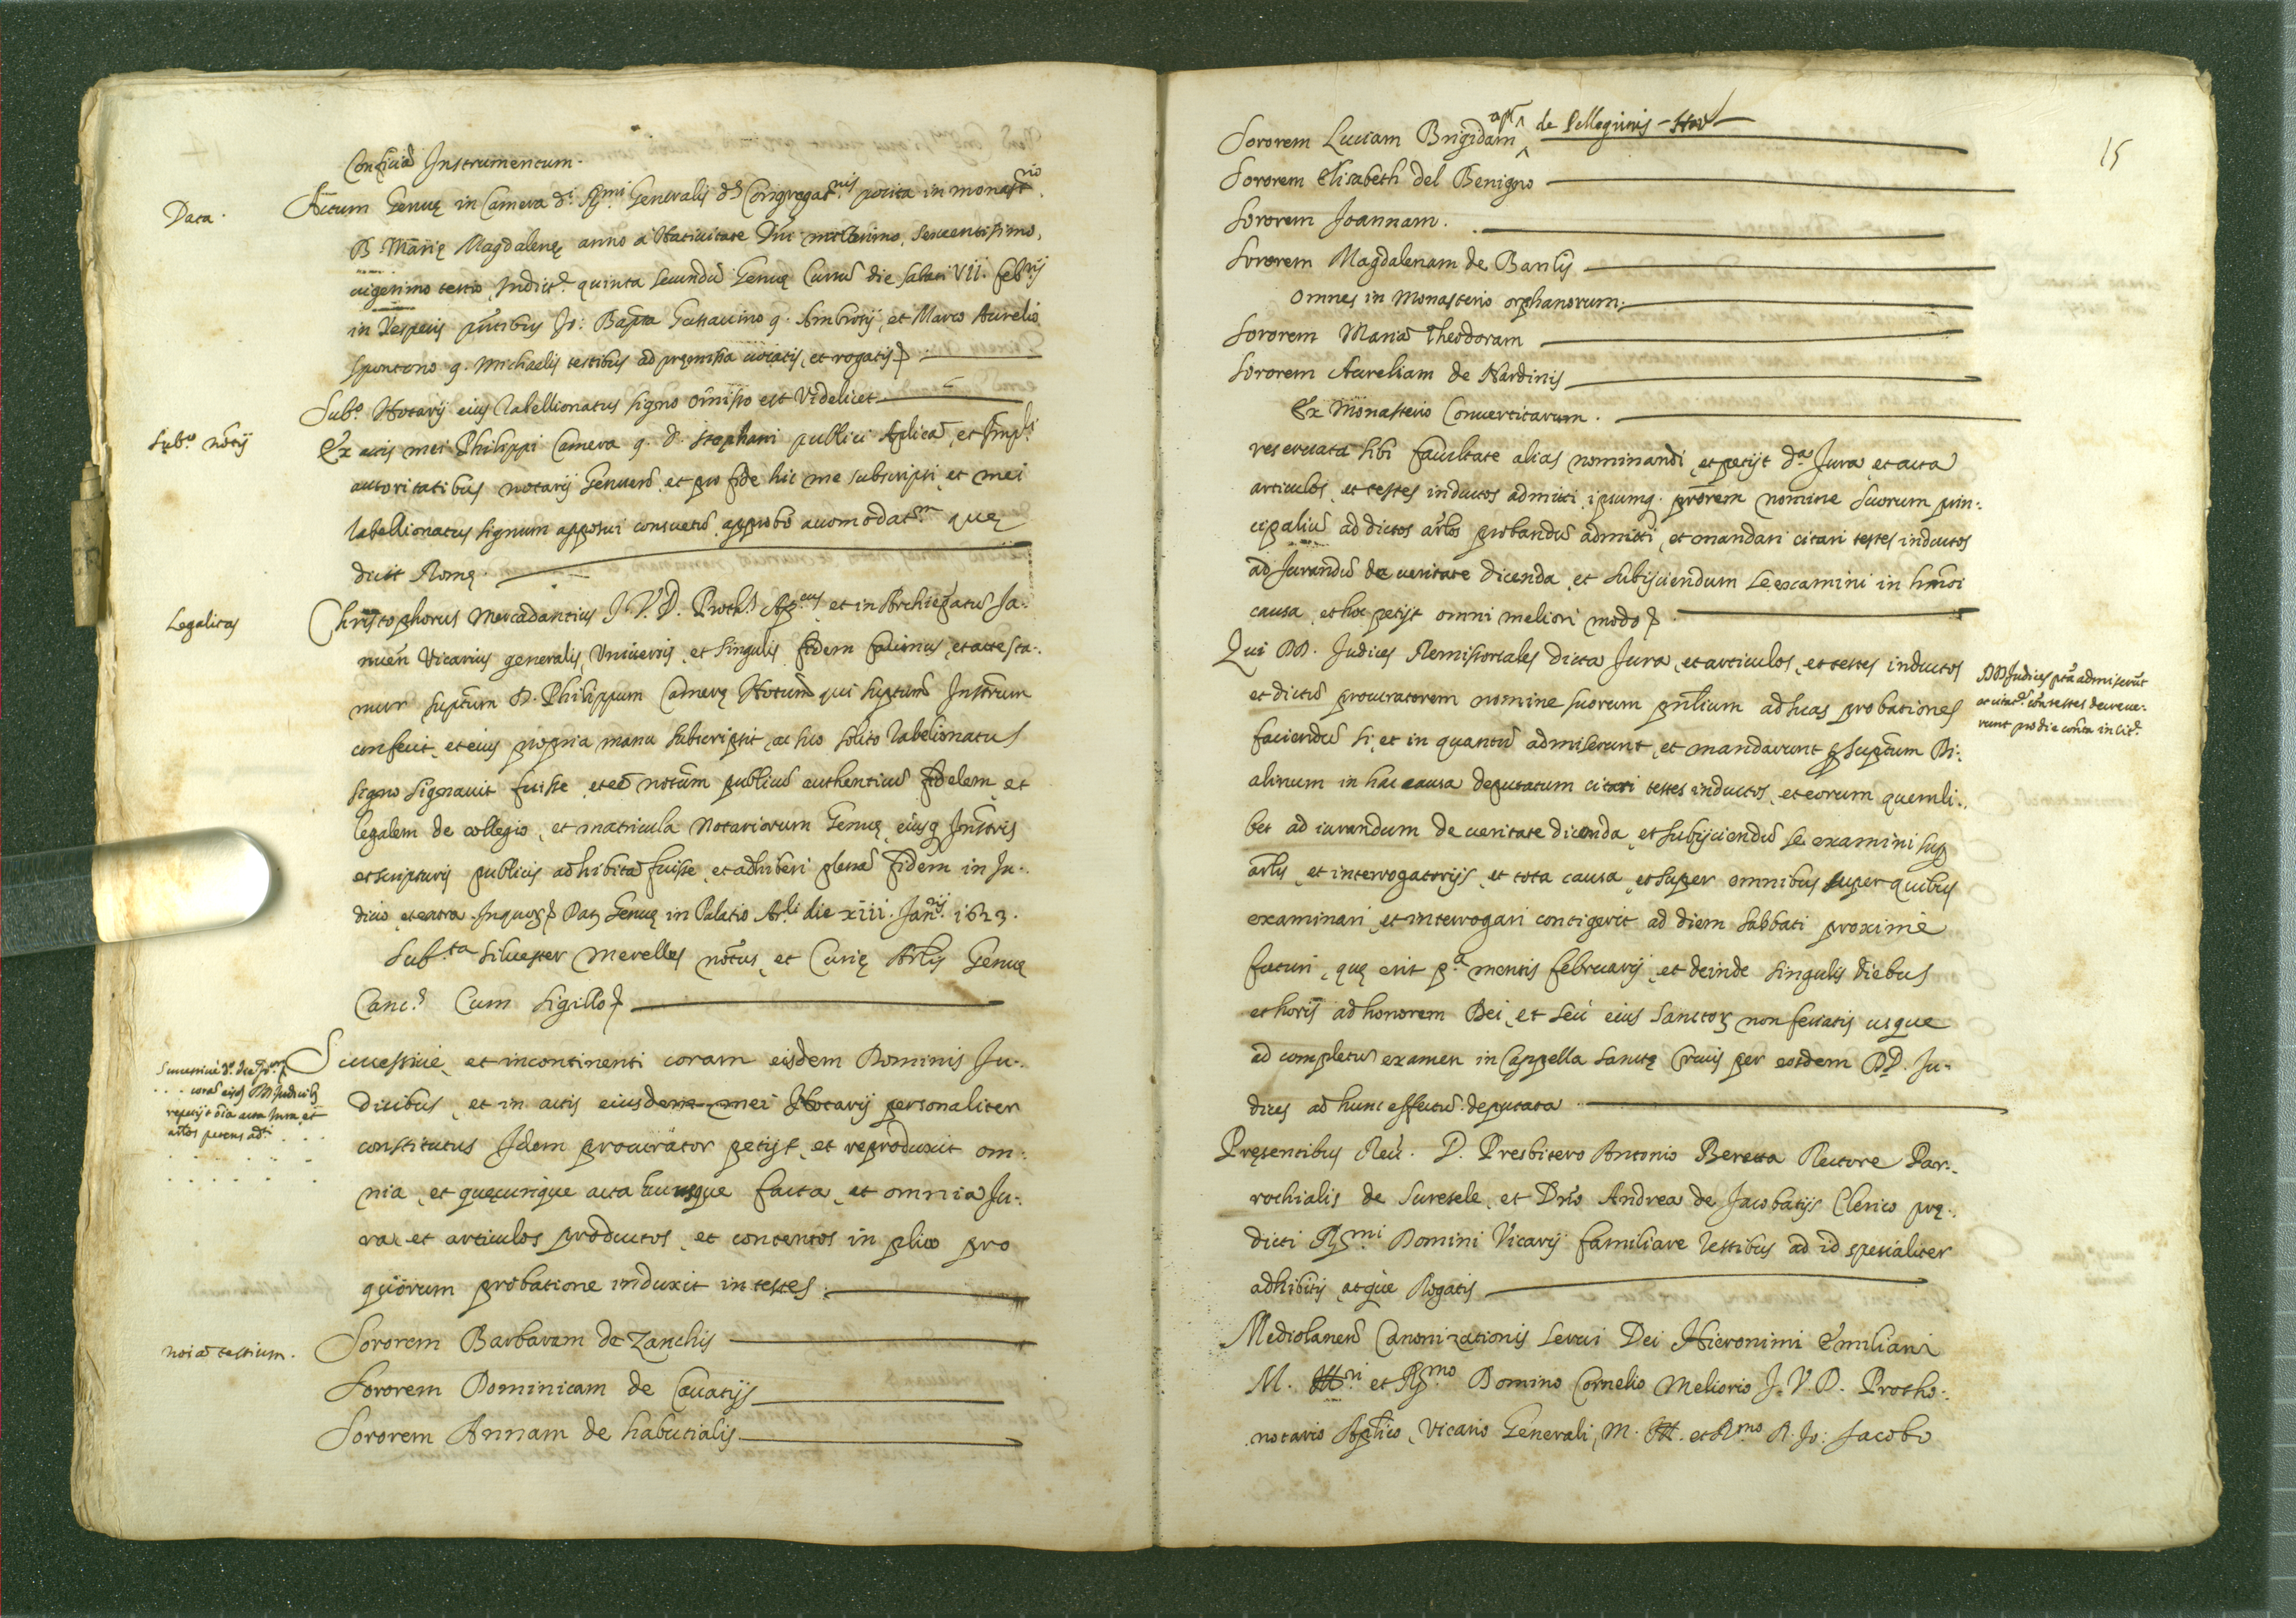 Conficiã Instrumentum.
Data.
Actum Genuę in Camera d.i R.mi Generalis d.ę Congregat.nis posita in monast.rio
B. Marię Magdalenę anno à Natiuitate Dñi millesimo, sexcentesimo,
uigesimo tertio, Indict.e quinta secundũ Genuę Cursũ die Sabati VII. feb.rij
in Vesperis pñtibus Jo: Bapta Gattauino q. Ambrosij, et Marco Aurelio
Spontono q. Michaelis testibus ad pręmissa uocatis, et rogatis
Sub.o notrij
Sub.o Notarij eius tabellionatus signo omisso est Videlicet
Ex actis mei Philippi Camera q. d. Stephani publici Aplicâ, et Imp.li
autoritatibus notarij Genueñ, et pro fide hic me subscripsi, et mei
tabellionatus signum apposui consuetũ approbo acomodat.m quę
dicit Romę.
Legalitas
Christophorus Mercadantius J. V. D. Proth.s Ap.cus et in Archiepatu Ja-
nueñ Vicarius generalis, Vniuersis, et singulis fidem facimus, et attesta-
mur suptum D. Philippum Camerę Notum qui suptum Instrum
confecit, et eius propria manu subscripsit, ac suo solito tabelionatus
signo signauit fuisse, et eẽ notum publicũ authenticũ fidelem, et
legalem de collegio, et matricula Notariorum Genuę, eiusq Instris
et scripturis publicis adhibitã fuisse, et adhiberi plenã fidem in Ju-
dicio, et extra. In quorũ Dat Genuę in Palatio Ar.li die xiii. Jan.ij 1623.
Sub.ta Siluester Merellus notus, et Curię Arlis Genuę
Canc.s Cum sigillo
Successiuè d.o die
corã eisd DD Judicib
repetijt oĩa acta Jura et
artlos petens ad.i
Successiuè, et incontinenti coram eisdem Dominis Ju-
dicibus, et in actis eiusdem mei Notarij personaliter
constitutus Idem procurator petijt, et reproduxit om-
nia, et quęcunque acta hucusque facta, et omnia Ju-
ra, et articulos productos, et contentos in plico pro
quorum probatione induxit in testes.
noiã testium.
Sororem Barbaram de Zanchis
Sororem Dominicam de Cauatijs
Sororem Annam de habutialis
15
de Pellegrinis
Sororem Luciam Brigidam
Sororem Elisabeth del Benigno
Sororem Joannam.
Sororem Magdalenam de Barilij
Omnes in Monasterio orphanorum.
Sororem Mariã Theodoram
Sororem Aureliam de Nardinis
Ex Monasterio Conuertitarum.
reseruata sibi facultate alias nominandi, et petijt d.a Jura et acta
articulos, et testes inductos admitti, ipsumq. prõrem nomine suorum prin-
cipaliũ ad dictos artlos probandũ admitti, et mandari citari testes inductos
ad Jurandũ de ueritate dicenda, et subijciendum se examini in hmõi
causa, et hoc petijt omni meliori modo
Qui DD. Judices Remissoriales dicta Jura, et articulos, et testes inductos
et dictũ procuratorem nomine suorum pñlium ad suas probationes
faciendũ si, et in quantũ admiserunt, et mandarunt p suptum Di-
alinum in hac causa deputatum citari testes inductos, et eorum quemli-
bet ad iurandum de ueritate dicenda, et subijciendũ se examini sup
artlis, et interrogatorijs, et tota causa, et super omnibus super quibus
examinari, et interrogari contigerit ad diem sabbati proximè
futuri, quę erit p.a mensis februarij, et deinde singulis diebus
et horis ad honorem Dei, et seú eius Sanctorũ non feriatis usque
ad completũ examen in Cappella Sanctę Crucis per eosdem DD. Ju-
dices ad hunc effectũ deputata
DD Judices pta admiserũt
et citar contestes decreue-
runt pro die contenta in lit.
Pręsentibus Reu. D. Presbitero Antonio Beretta Rectore Par-
rochialis de Suresele, et Dño Andrea de Jacobatijs Clerico prę-
dicti R.mi Domini Vicarij familiare testibus ad id spetialiter
adhibitis, atque Rogatis
Mediolaneñ Canonizationis serui Dei Hieronimi Emiliani
M. Ill.ri et R.mo Domino Cornelio Meliorio J. V. D. Protho-
notario Aplico, Vicario Generali, M. Ill. et R.mo D. Jo: Jacobo